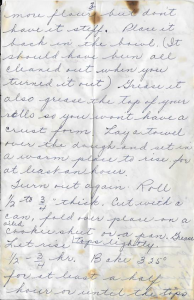 3
more flour but don't
have it stiff. Place it
back in the bowl. (It
should have been all
cleaned out when you
turned it out) Grease it
also grease the top of your
rolls so you won't have a
crust form. Lay a towel
over the dough and set in
a warm place to rise for
at least an hour.
Turn out again. Roll
1/2 to 3/4 thick. Cut with a
can, fold over place on a
cookie sheet or a pan. Grease
Let rise tops lightly
1/2 - 3/4 hr. Bake 325°
for at least a half
hour or until the tops